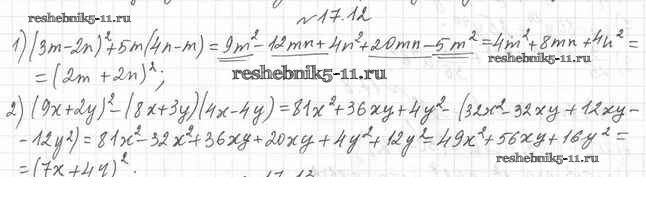 reshebnik5-11.ru
№17.12
1) (3m-2n)²+5m(4n-m) = 9m²-12mn+4n²+20mn-5m² = 4m²+8mn+4n² =
= (2m+2n)²;
reshebnik5-11.ru
reshebnik5-11.ru
2) (9x+2y)²-(8x+3y)(4x-4y) = 81x²+36xy+4y²-(32x²-32xy+12xy-
-12y²) = 81x²-32x²+36xy+20xy+4y²+12y² = 49x²+56xy+16y² =
= (7x+4y)².
reshebnik5-11.ru